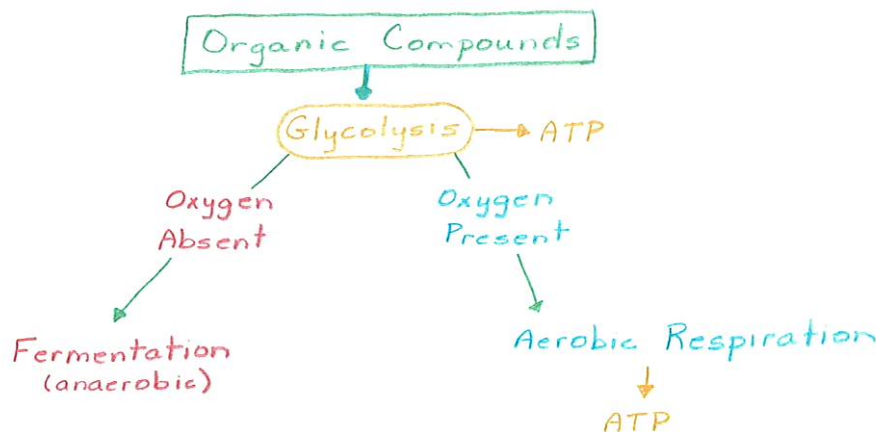 Organic Compounds
Glycolysis
ATP
Oxygen
Absent
Oxygen
Present
Fermentation
(anaerobic)
Aerobic Respiration
ATP